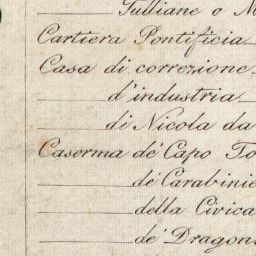 Tulliane o
Cartiera Pontificia
Casa di correzione
d'industria
di Nicola da
Caserma de' Capo To
de' Carabinie
della Civica
de' Dragon